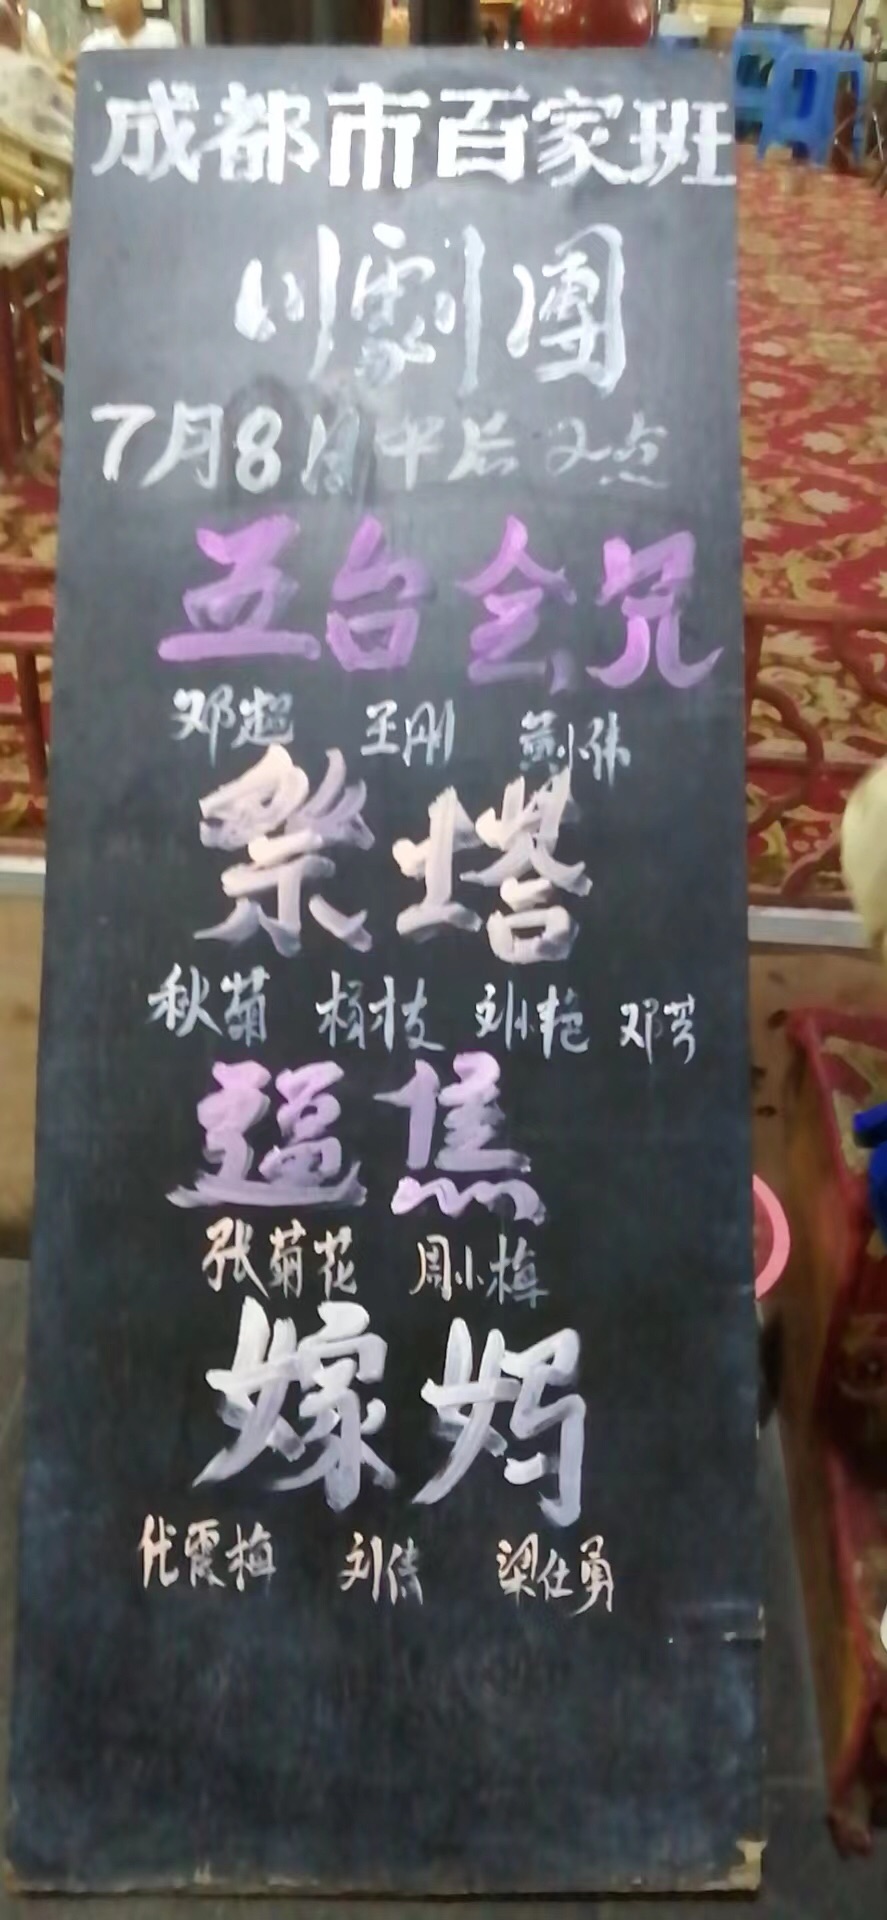 成都市百家班
川劇團
7月8日午后2点
五台会兄
邓超 王刚 黄小伟
祭塔
秋菊 杨枝 刘小艳 邓芳
逼焦
张菊花 周小梅
嫁妈
代霞梅 刘倩 梁仕勇